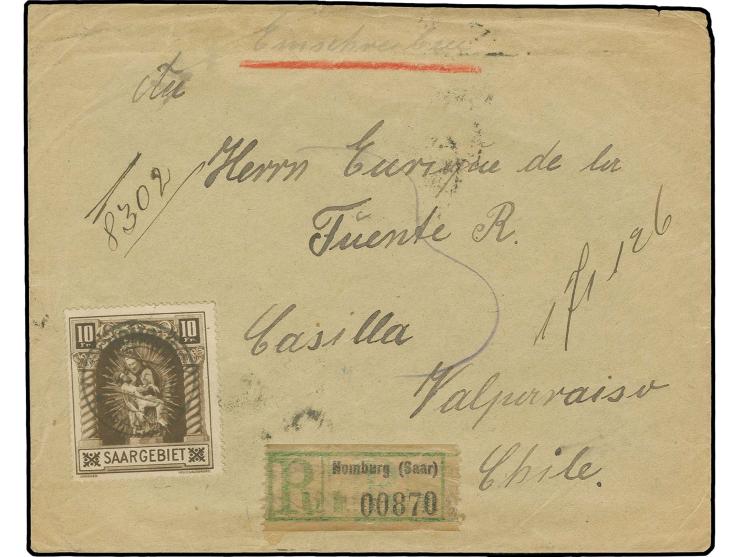 Einschreiben
An
Herrn Enrique de la
Fuente R.
8302
Casilla
Valparaiso
Chile.
10 10
Fr. Fr.
SAARGEBIET
R
Homburg (Saar)
00870